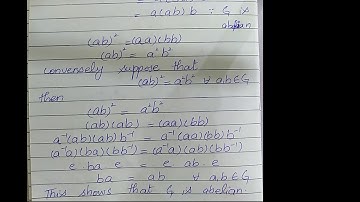 = a(ab)b ∵ G is
abelian
(ab)² = (aa)(bb)
(ab)² = a²b²
conversely suppose that
(ab)² = a²b² ∀ a,b∈G
then
(ab)² = a²b²
(ab)(ab) = (aa)(bb)
a⁻¹(ab)(ab)b⁻¹ = a⁻¹(aa)(bb)b⁻¹
(a⁻¹a)(ba)(bb⁻¹) = (a⁻¹a)(ab)(bb⁻¹)
e ba e = e ab e
ba = ab ∀ a,b∈G
This shows that G is abelian.